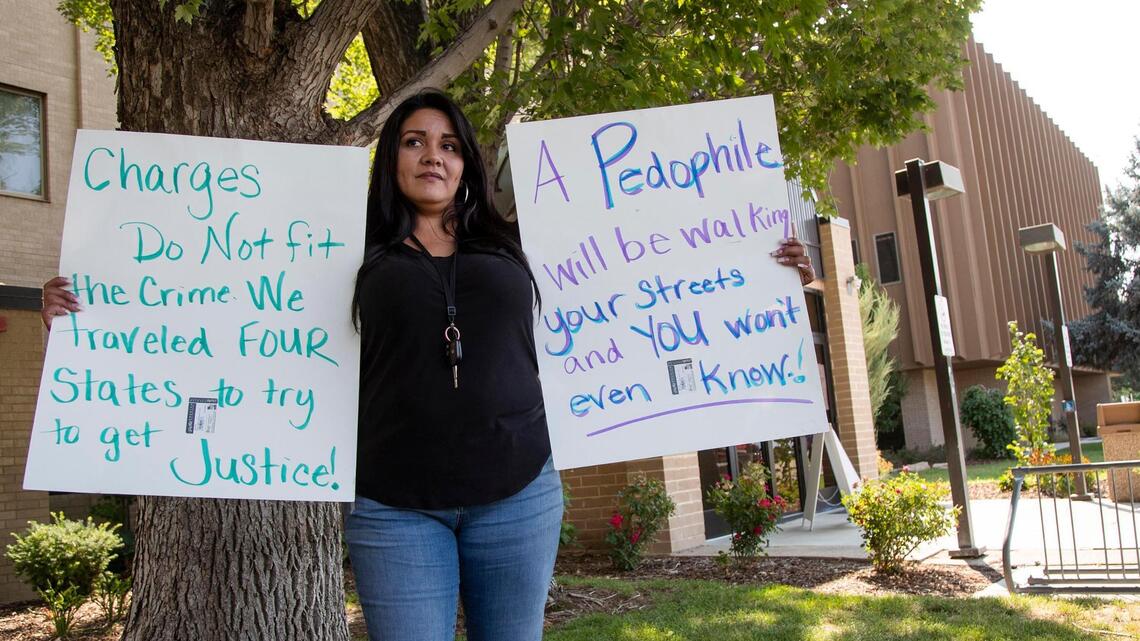 Charges
Do Not fit
the Crime. We
traveled FOUR
States to try
to get Justice!
A Pedophile
will be walking
your streets
and YOU won't
even know.!